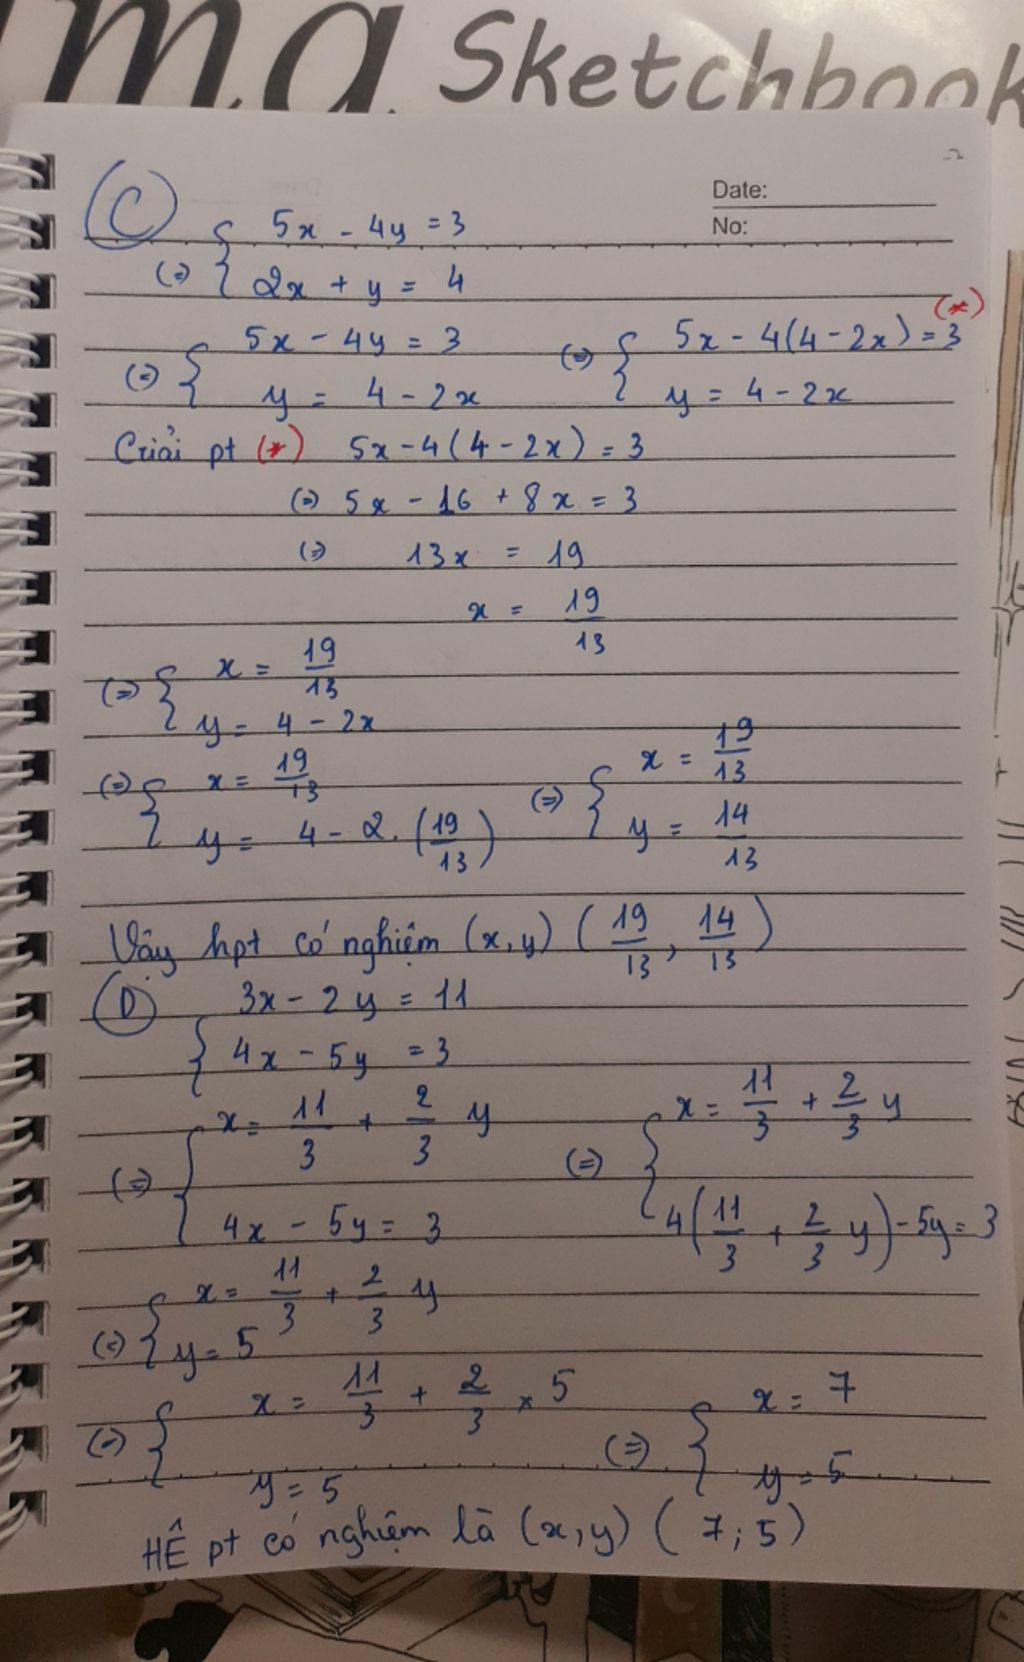 ma Sketchbook
Date:
No:
C
(=) { 5x - 4y = 3
2x + y = 4
(=) { 5x - 4y = 3
y = 4 - 2x
(=) { 5x - 4(4 - 2x) = 3 (*)
y = 4 - 2x
Giải pt (*) 5x - 4(4 - 2x) = 3
(=) 5x - 16 + 8x = 3
(=) 13x = 19
x = 19/13
(=) { x = 19/13
y = 4 - 2x
(=) { x = 19/13
y = 4 - 2.(19/13)
(=) { x = 19/13
y = 14/13
Vây hpt có nghiệm (x,y) (19/13, 14/13)
D
{ 3x - 2y = 11
4x - 5y = 3
(=) { x = 11/3 + 2/3 y
4x - 5y = 3
(=) { x = 11/3 + 2/3 y
4(11/3 + 2/3 y) - 5y = 3
(=) { x = 11/3 + 2/3 y
y = 5
(=) { x = 11/3 + 2/3 × 5
y = 5
(=) { x = 7
y = 5
HÊ pt có nghiệm là (x,y) (7;5)